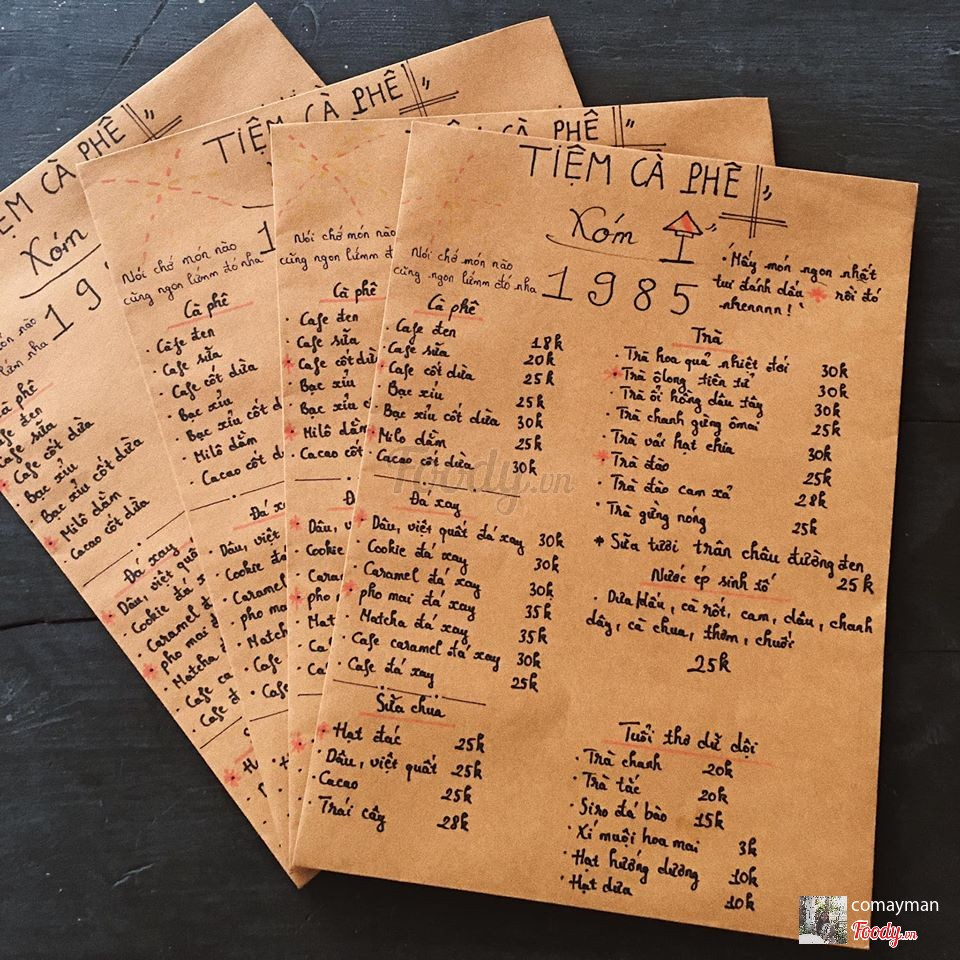 TIỆM CÀ PHÊ
Xóm
1985
Nói chớ món nào
cũng ngon lứmm đó nha
Mấy món ngon nhất
tư đánh dấu rồi đó
nhennnn!
Cà phê
Cafe đen 18k
Cafe sữa 20k
Cafe cốt dừa 25k
Bạc xỉu 25k
Bạc xỉu cốt dừa 30k
Milo dằm 25k
Cacao cốt dừa 30k
Đá xay
Dâu, việt quất đá xay 30k
Cookie đá xay 30k
Caramel đá xay 30k
pho mai đá xay 35k
Matcha đá xay 35k
Cafe caramel đá xay 30k
Cafe đá xay 25k
Sữa chua
Hạt đác 25k
Dâu, việt quất 25k
Cacao 25k
Trái cây 28k
Trà
Trà hoa quả nhiệt đới 30k
Trà ôlong tiên tử 30k
Trà ổi hồng dâu tây 30k
Trà chanh gừng ômai 25k
Trà vải hạt chia 30k
Trà đào 25k
Trà đào cam xả 28k
Trà gừng nóng 25k
* Sữa tươi trân châu đường đen
25k
Nước ép sinh tố
Dưa hấu, cà rốt, cam, dâu, chanh
dây, cà chua, thơm, chuối
25k
Tuổi thơ dữ dội
Trà chanh 20k
Trà tắc 20k
Siro đá bào 15k
Xí muội hoa mai 3k
Hạt hướng dương 10k
Hạt dưa 10k
TIỆM CÀ PHÊ
Xóm
Nói chớ món nào
cũng ngon lứmm đó nha
Cà phê
Cafe đen
Cafe sữa
Cafe cốt dừa
Bạc xỉu
Milô dằm
Cacao cốt
Foody.vn
comayman
Foody.vn